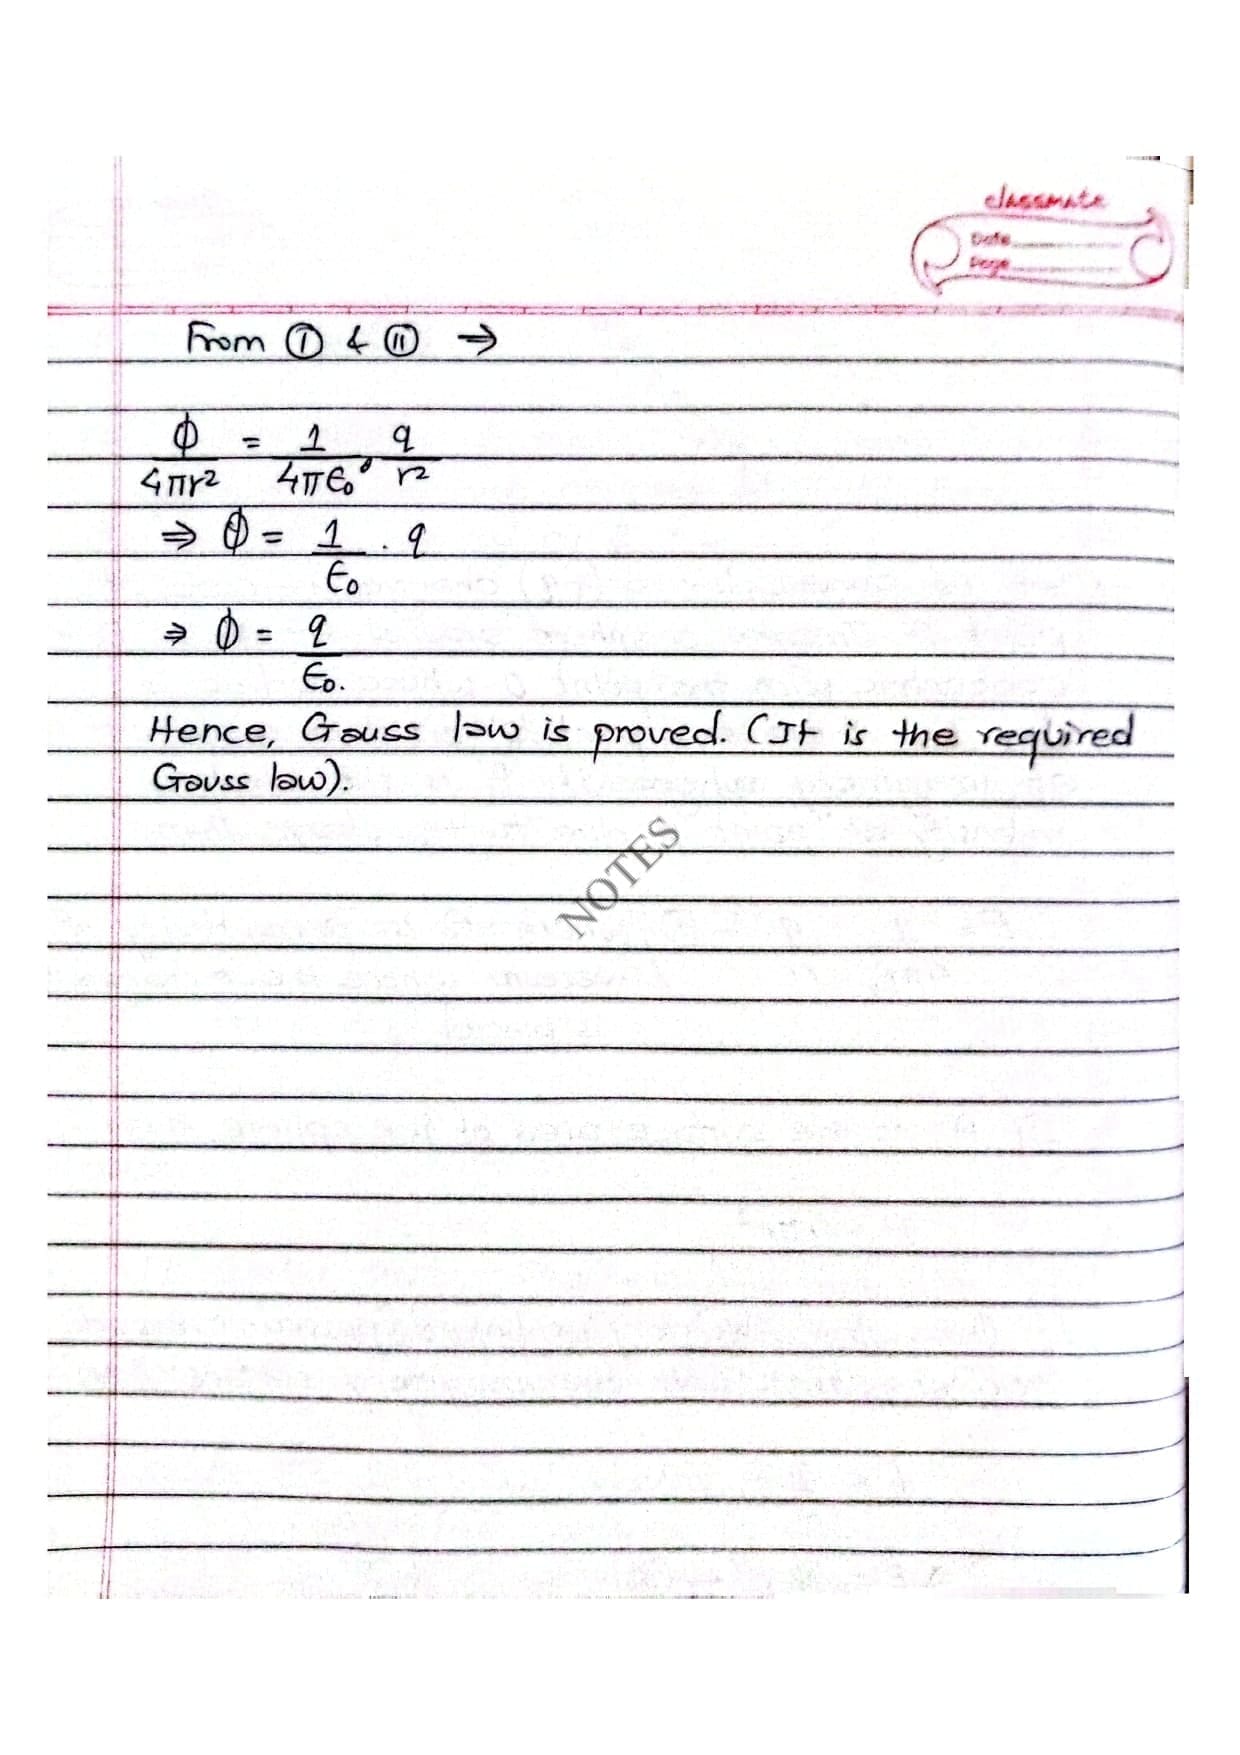 classmate
Date
Page
From Ⓘ & ⑪ ⇒
ϕ/4πr² = 1/4πϵ₀ · q/r²
⇒ ϕ = 1/ϵ₀ . q
⇒ ϕ = q/ϵ₀.
Hence, Gauss law is proved. (It is the required
Gauss law).
NOTES